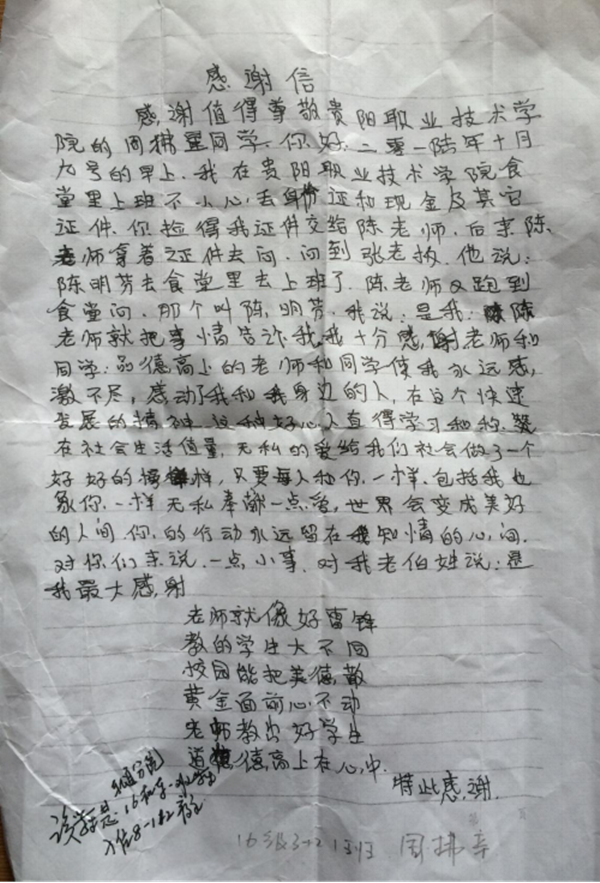 感谢信
感谢值得尊敬贵阳职业技术学
院的周拂星同学.你好.二零一陆年十月
九号的早上.我在贵阳职业技术学院食
堂里上班不小心.丢身份证和现金及其它
证件.你捡得我证件交给陈老师.后来陈
老师拿着之证件去问.问到张老板.他说:
陈明芳去食堂里去上班了.陈老师又跑到
食堂问.那个叫陈.明芳.我说:是我:陈
老师就把事情告诉我.我十分感谢老师和
同学:品德高上的老师和同学使我永远感
激不尽,感动了我和我身边的人,在这个快速
发展的精神.这种好心人直得学习和称
在社会生活值量,无私的爱给我们社会做了一个
好好的榜样,只要每人和你.一样.包括我也
象你.一样无私奉献一点爱,世界会变成美好
的人间.你.的行动永远留在我知情的心.间.
对你们来说.一点小事.对我老伯姓说:是
我最大感射
老师就像好雷锋
教的学生大不同
校园能把美德散
黄金面前心不动
老师教出好学生
道德高上在心中.
特此感谢.
该是
16级3+2 1班